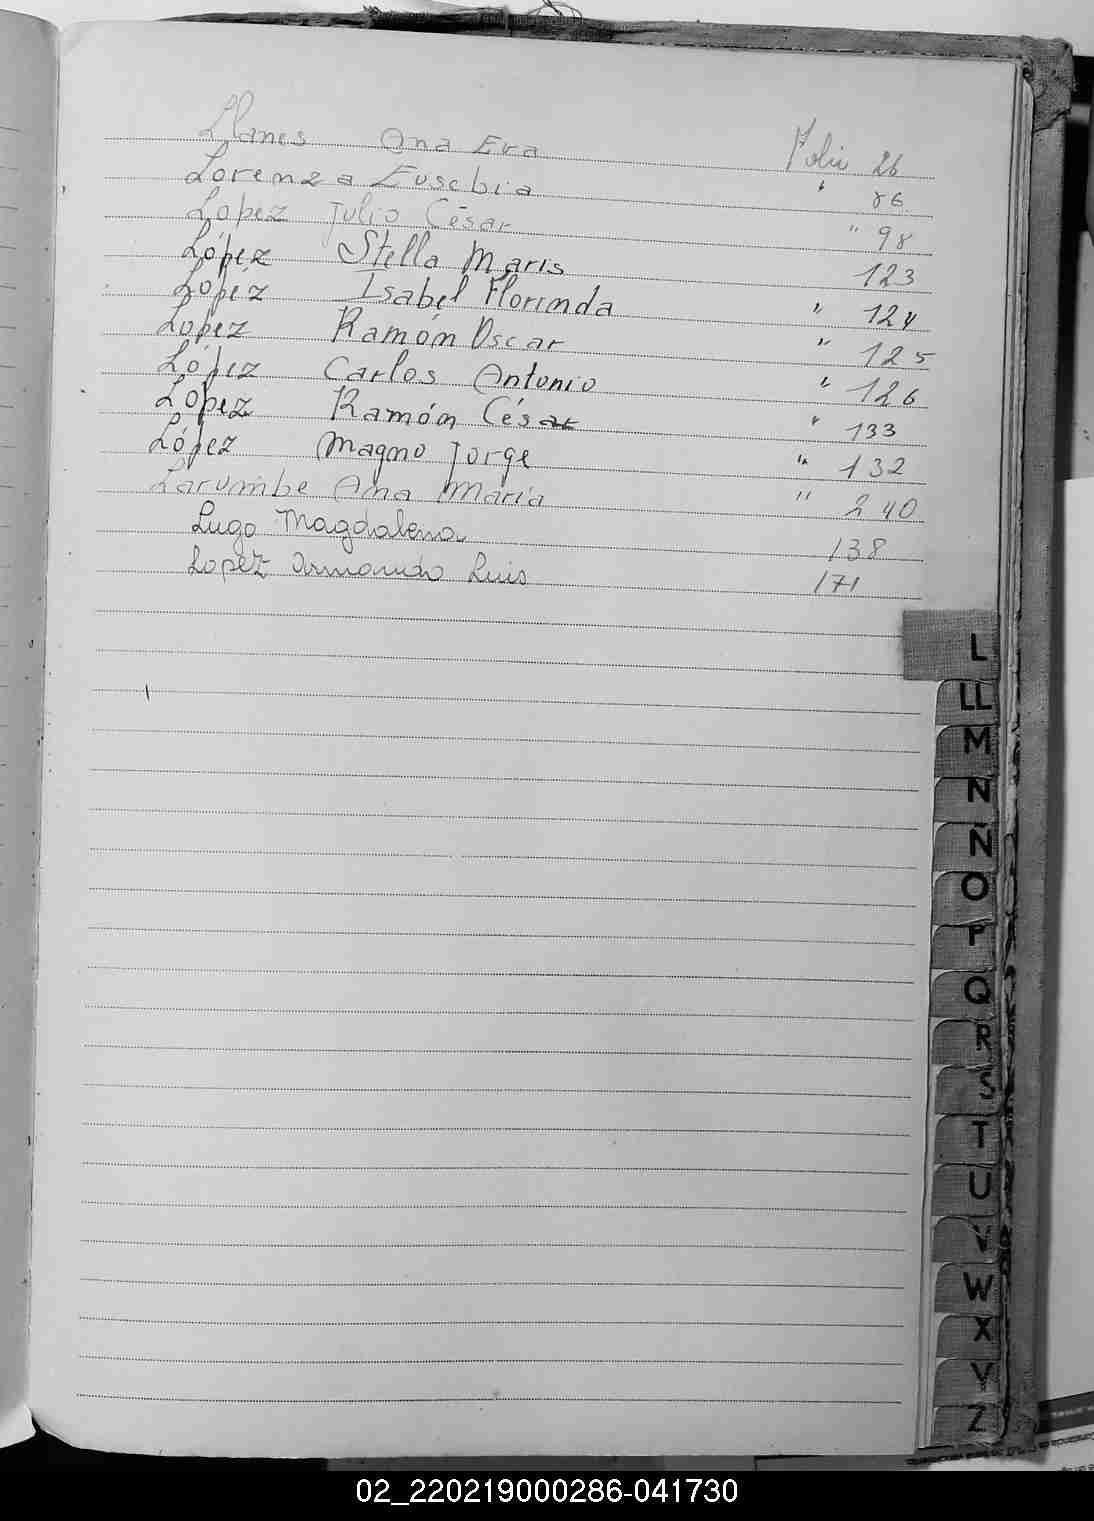 Llanes Ana Eva Folio 26
Lorenza Eusebia " 86
Lopez Julio César " 98
López Stella Maris 123
López Isabel Florinda " 124
Lopez Ramón Oscar " 125
López Carlos Antonio " 126
López Ramón César " 133
López Magno Jorge " 132
Larumbe Ana María " 240
Lugo Magdalena 138
Lopez Armando Luis 171
L
LL
M
N
Ñ
O
P
Q
R
S
T
U
V
W
X
Y
Z
02_220219000286-041730